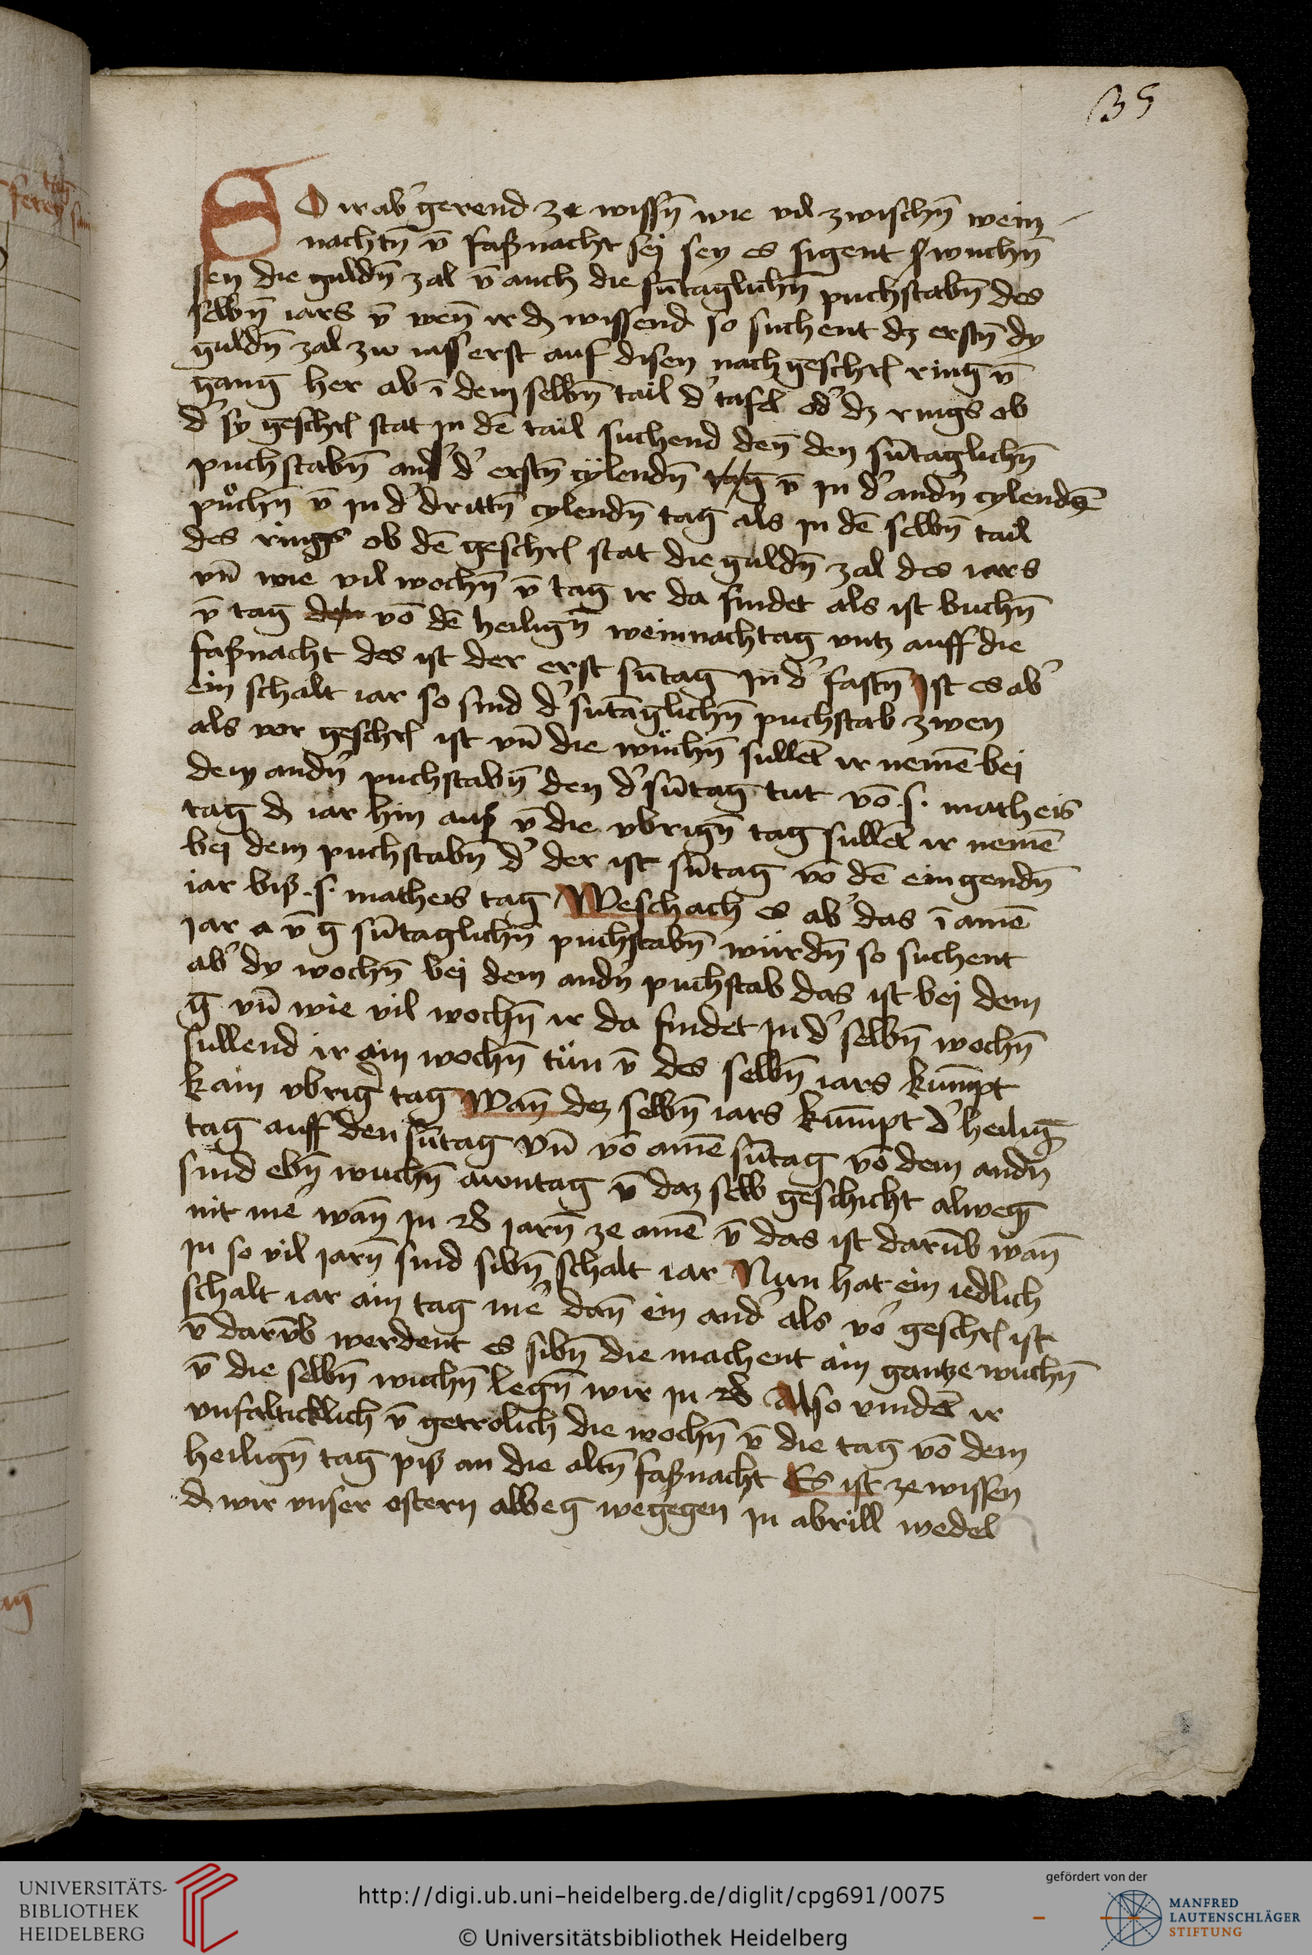 35
SO ir ab' gerend ze wissn̄ wie vil zwischn̄ wein
nachtn̄ v̄ faßnacht sej sey es sigent wuchn̄
sen die guldn̄ zal v̄ auch die sūtaglichn̄ puchstabn̄ des
selbn̄ iars v̄ wen̄ ir dz wissend so suchent dz erstn̄ dy
guldn̄ zal zw auf disen nach ring v̄
gang her ab ī dem selbn̄ tail d' tafel od' dz rings ob
d' sy stat in dē tail suchend den̄ den sūtaglichn̄
puchstabn̄ d' erstn̄ cylendn̄ v̄ in d' andn̄ cylendn̄
v̄ in d' drittn̄ cylendn̄ tag als in dē selbn̄ tail
des rings ob dē stat die guldn̄ zal des iars
vn̄ wie vil wochn̄ v̄ tag ir da findet als ist wuchn̄
v̄ tag vō dē heilign̄ weinnachtag vntz auff die
faßnacht des ist der erst sūtag in d' fastn̄ Ist es ab'
ein schalt iar so sind d' sūtaglichn̄ puchstab zwen
als vor ist vn̄ die wuchn̄ sullēt ir nemē bej
dem andn̄ puchstabn̄ den d' sūtag tut vō .s. matheis
tag dz iar hin auß v̄ die vbrign̄ tag sullēt ir nemē
bej dem puchstabn̄ d' der ist sūtag vō dē eingendn̄
iar biß .s. matheis tag Weschach es ab' das ī ainē
jar a v̄ g sūtaglichn̄ puchstabn̄ würdn̄ so suchent
ab' dy wochn̄ bej dem andn̄ puchstab das ist bej dem
g vn̄ wie vil wochn̄ ir da findet in d' selbn̄ wochn̄
sullend ir ain wochn̄ tün v̄ des selbn̄ iars kumpt
kain vbrig' tag Wan̄ dez selbn̄ iars kumpt d' heilig
tag auff den sūtag vn̄ vō ainē sūtag vō dem andn̄
sind ebn̄ wuchn̄ v̄ daz selb geschicht alweg
nit me' wan̄ in 28 jarn̄ ze ainē v̄ das ist darūb wan̄
in so vil jarn̄ sind sibn̄ schalt iar Nun hat ein iedlich
schalt iar ain tag me' dan̄ ein and' als vo' ist
v̄ darūb werdent es sibn̄ die machent ain gantze wuchn̄
v̄ die selbn̄ wuchn̄ legn̄ wir in 28 Also vindēt ir
v̄ die wochn̄ v̄ die tag vō dem
heilign̄ tag piß an die altn̄ faßnacht Es ist ze wissen
dz wir vnser ostern alweg wegegen in abrill wedel
UNIVERSITÄTS-
BIBLIOTHEK
HEIDELBERG
http://digi.ub.uni-heidelberg.de/diglit/cpg691/0075
© Universitätsbibliothek Heidelberg
gefördert von der
MANFRED
LAUTENSCHLÄGER
STIFTUNG